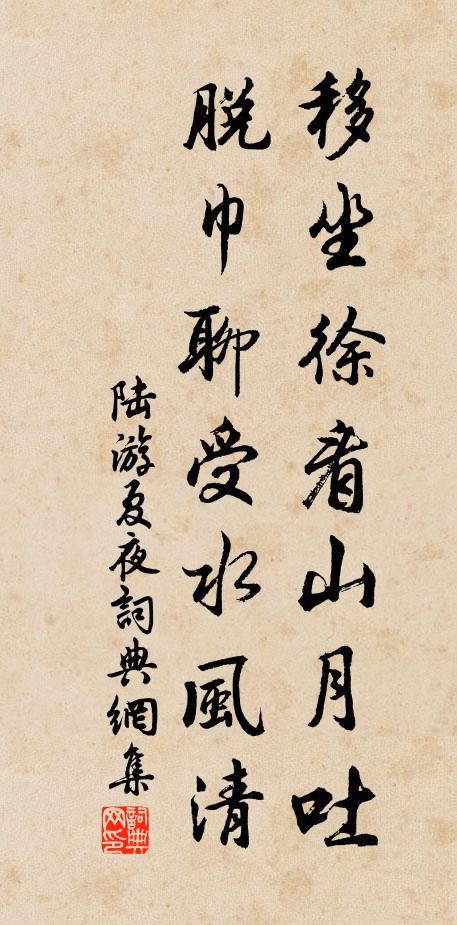 移坐徐看山月吐
脱巾聊受水風清
陆游夏夜詞典網集
詞典网印